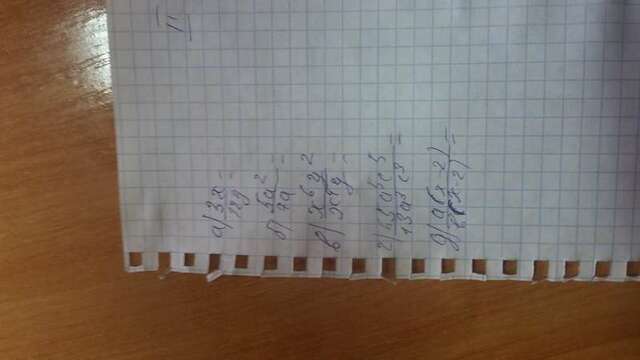 II
а) 3x/12y =
б) 5a²/7a =
в) x⁶y²/x⁴y =
г) a⁵c⁵/13a³c³ =
д) a(x-2)/b(x-2) =